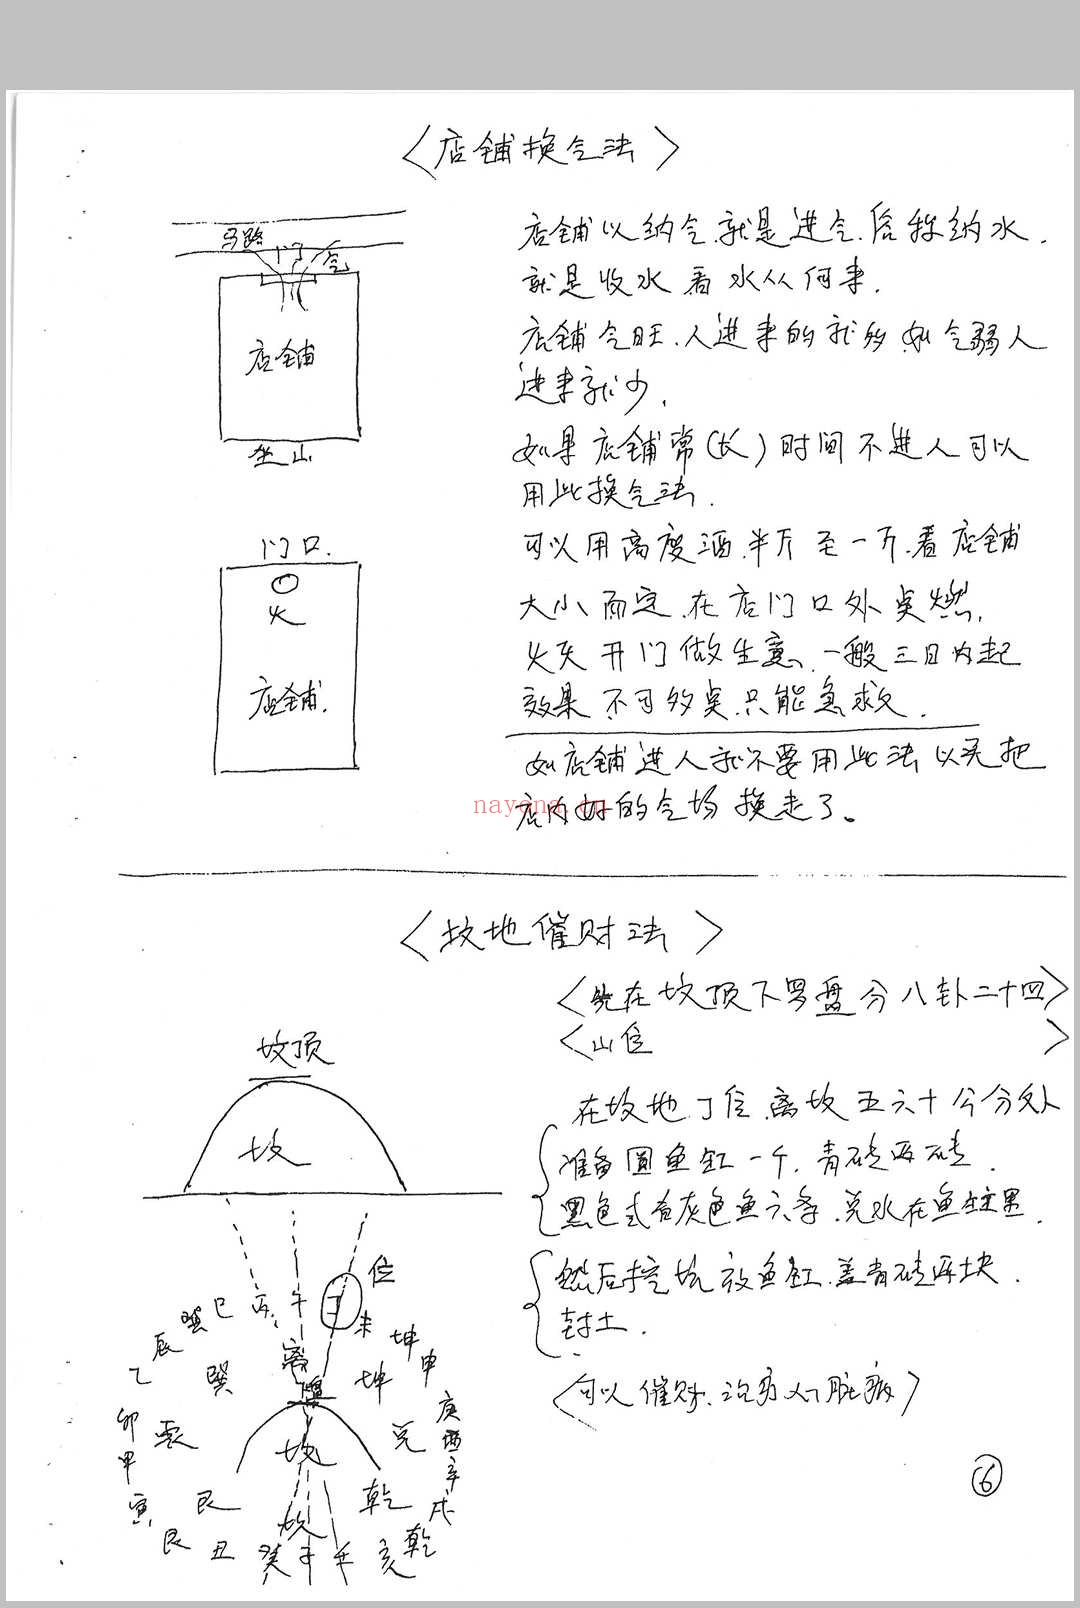 〈店铺换气法〉
店铺以纳气.就是进气.俗称纳水.
就是收水看水从何来.
店铺气旺.人进来的就多.如气弱人
进来就少.
如果店铺常(长)时间不进人可以
用此换气法.
可以用高度酒.半斤至一斤.看店铺
大小而定.在店门口外点燃.
火灭开门做生意.一般三日内起
效果.不可多点.只能急救.
如店铺进人就不要用此法以免把
店内好的气场换走了。
马路
门
气
店铺
坐山
门口.
火
店铺.
nayona.cn
〈坟地催财法〉
〈先在坟顶下罗盘分八卦二十四〉
〈山位〉
在坟地丁位.离坟五六十公分处
准备圆鱼缸一个.青砖两砖.
黑色或者灰色鱼六条.兑水在鱼缸里.
然后挖坑放鱼缸.盖青砖两块.
封土.
〈可以催财.治男人脏病〉
坟顶
坟
位
辰巽巳丙午丁未坤申
乙巽离坤
卯震坟兑庚酉辛
甲
寅艮坟乾戌
艮丑癸子壬亥乾
⑥